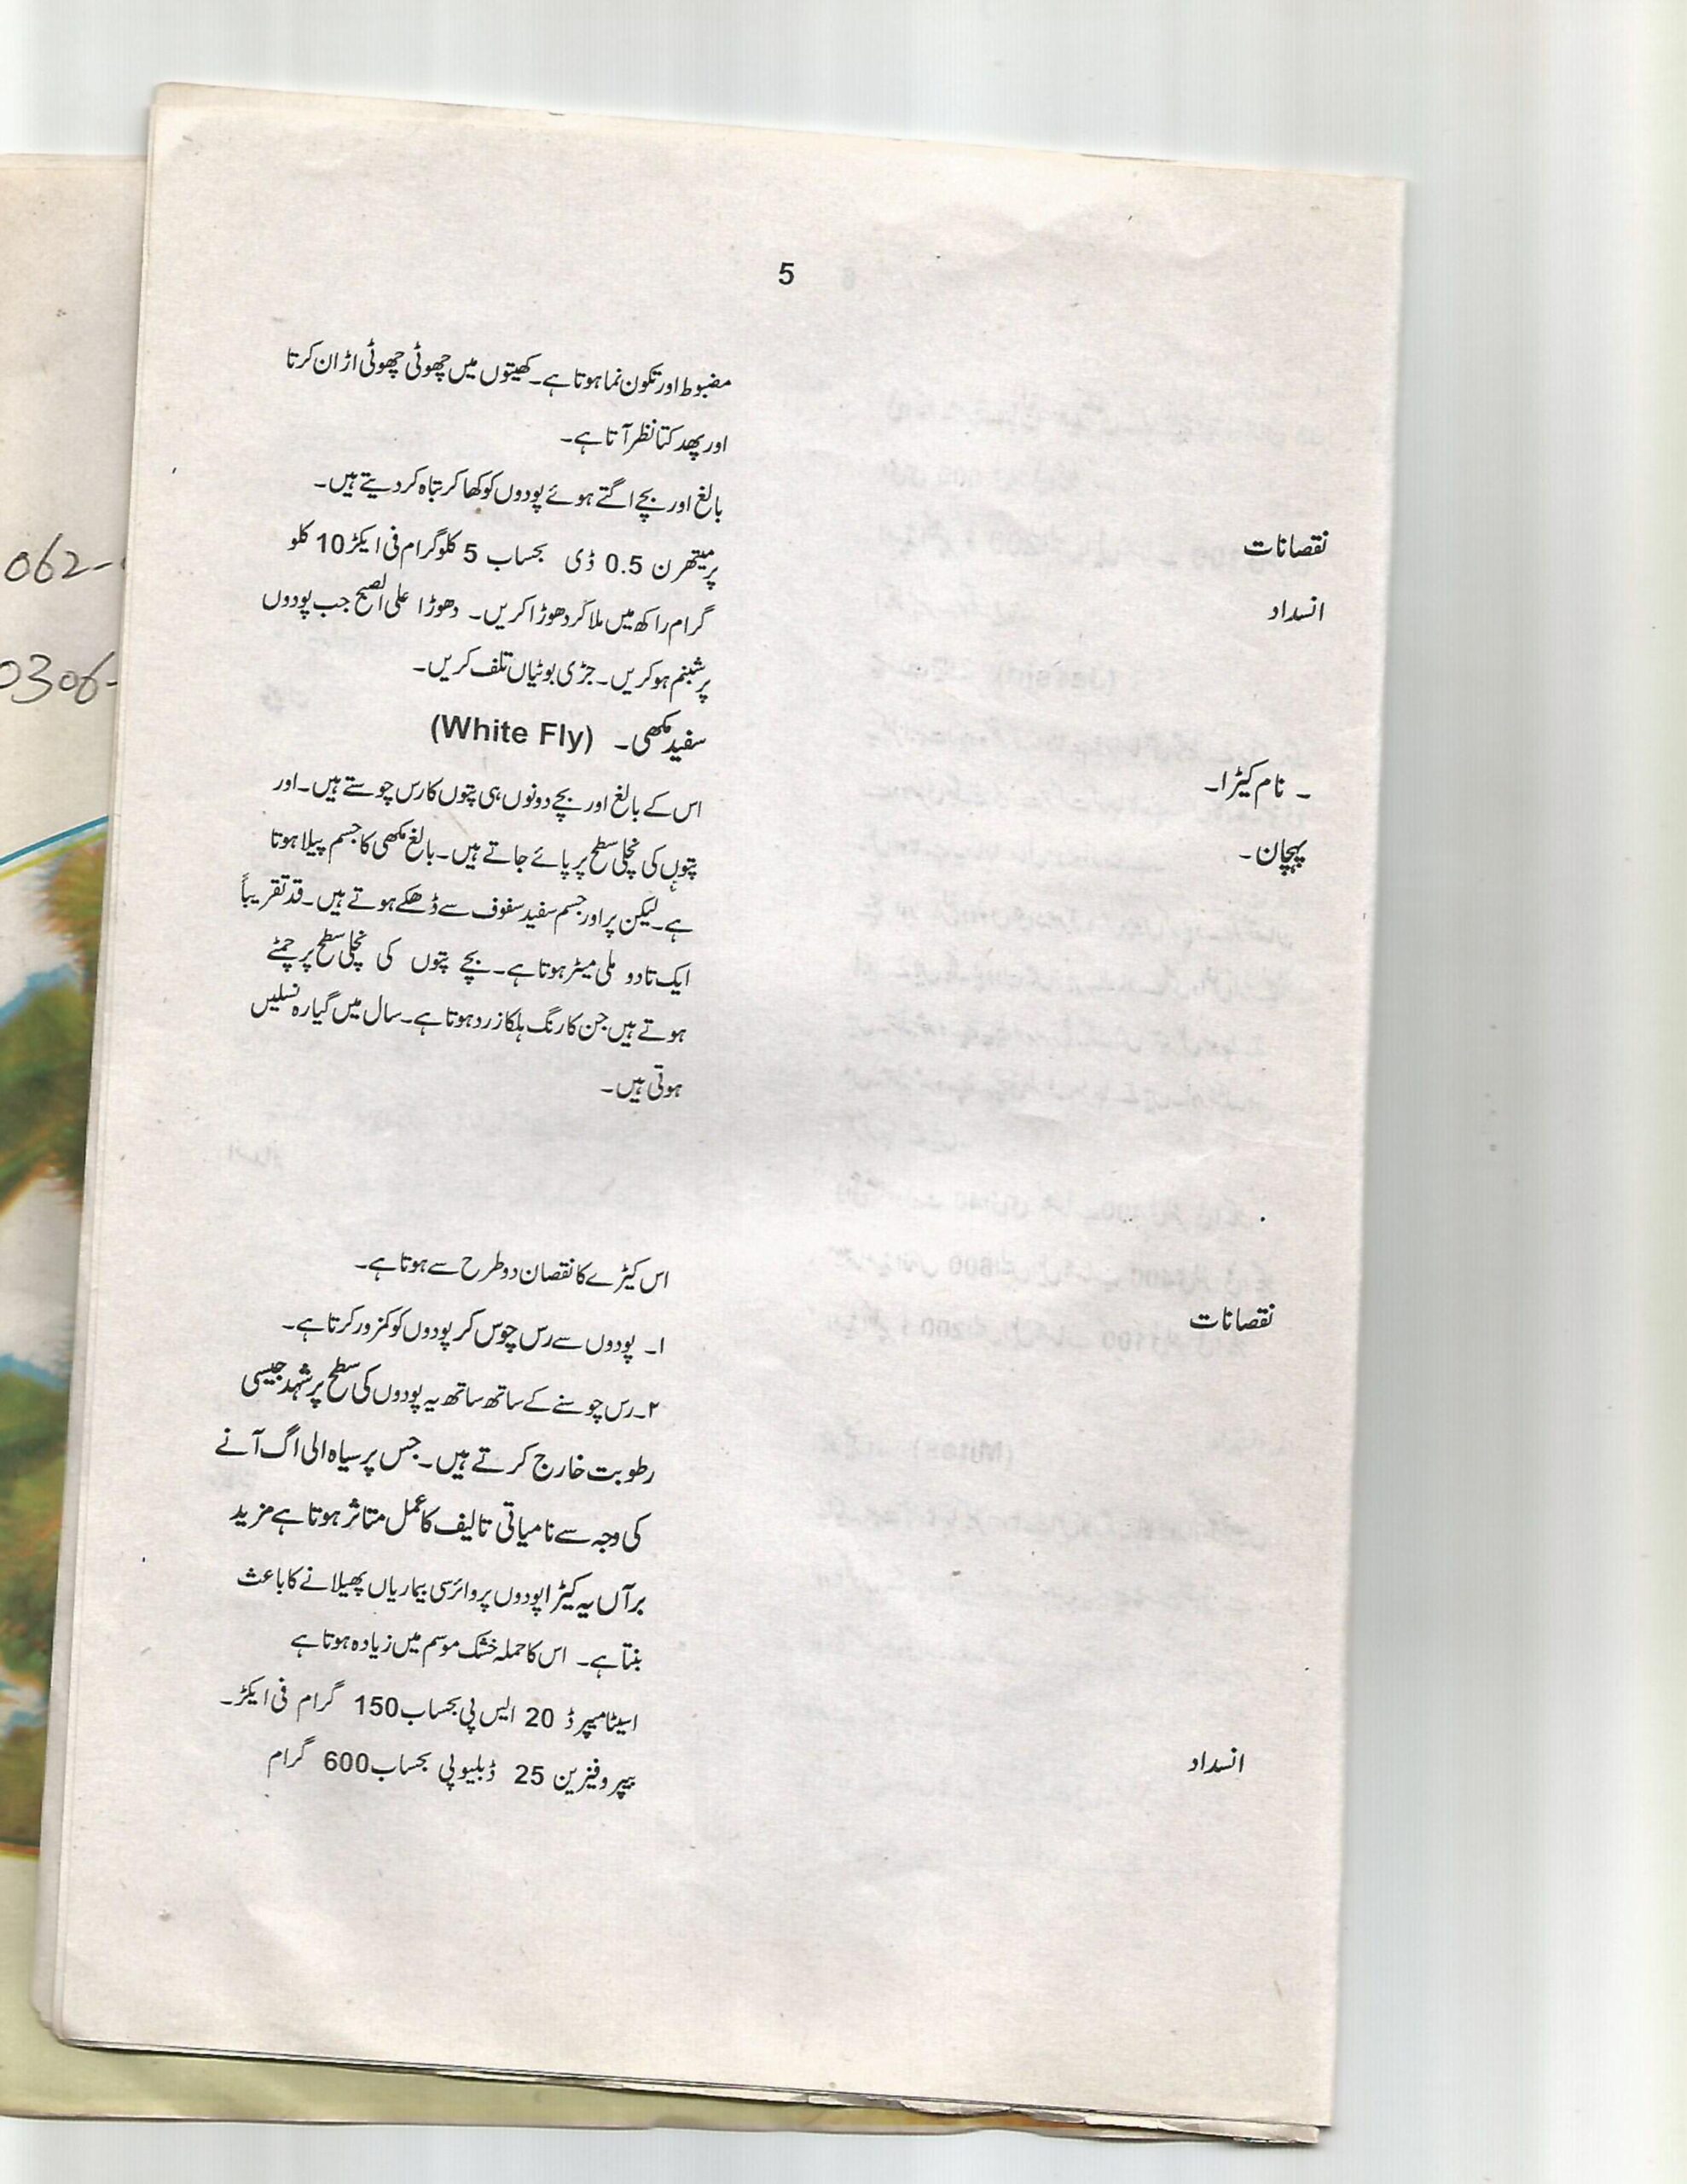 5
مضبوط اور تکون نما ہوتا ہے۔ کھیتوں میں چھوٹی چھوٹی اڑان کرتا
اور پھدکتا نظر آتا ہے۔
نقصانات
بالغ اور بچے اگتے ہوئے پودوں کو کھا کر تباہ کر دیتے ہیں۔
انسداد
پرمیتھرن 0.5 ڈی بحساب 5 کلو گرام فی ایکڑ 10 کلو
گرام راکھ میں ملا کر دھوڑا کریں۔ دھوڑا علی الصبح جب پودوں
پر شبنم ہو کریں۔ جڑی بوٹیاں تلف کریں۔
۔ نام کیڑا۔
سفید مکھی۔ (White Fly)
پہچان۔
اس کے بالغ اور بچے دونوں ہی پتوں کا رس چوستے ہیں۔ اور
پتوں کی نچلی سطح پر پائے جاتے ہیں۔ بالغ مکھی کا جسم پیلا ہوتا
ہے۔ لیکن پر اور جسم سفید سفوف سے ڈھکے ہوتے ہیں۔ قد تقریباً
ایک تا دو ملی میٹر ہوتا ہے۔ بچے پتوں کی نچلی سطح پر چمٹے
ہوتے ہیں جن کا رنگ ہلکا زرد ہوتا ہے۔ سال میں گیارہ نسلیں
ہوتی ہیں۔
نقصانات
اس کیڑے کا نقصان دو طرح سے ہوتا ہے۔
۱۔ پودوں سے رس چوس کر پودوں کو کمزور کرتا ہے۔
۲۔ رس چوسنے کے ساتھ ساتھ یہ پودوں کی سطح پر شہد جیسی
رطوبت خارج کرتے ہیں۔ جس پر سیاہ الی اگ آنے
کی وجہ سے نامیاتی تالیف کا عمل متاثر ہوتا ہے مزید
برآں یہ کیڑا پودوں پر وائرسی بیماریاں پھیلانے کا باعث
بنتا ہے۔ اس کا حملہ خشک موسم میں زیادہ ہوتا ہے
انسداد
اسیٹامیپرڈ 20 ایس پی بحساب 150 گرام فی ایکڑ۔
بیپروفیزین 25 ڈبلیو پی بحساب 600 گرام
062-
0306-